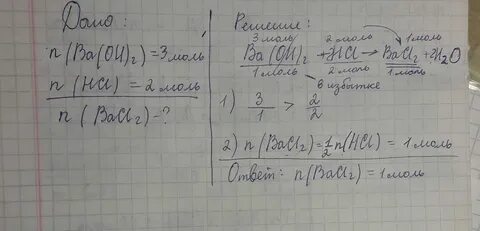 Дано:
n(Ba(OH)₂)=3моль
n(HCl)=2моль
n(BaCl₂)-?
Решение:
3моль 2моль 1моль
Ba(OH)₂ + 2HCl → BaCl₂ + 2H₂O
1моль 2моль 1моль
в избытке
1) 3/1 > 2/2
2) n(BaCl₂)=1/2n(HCl) = 1моль
Ответ: n(BaCl₂)=1моль